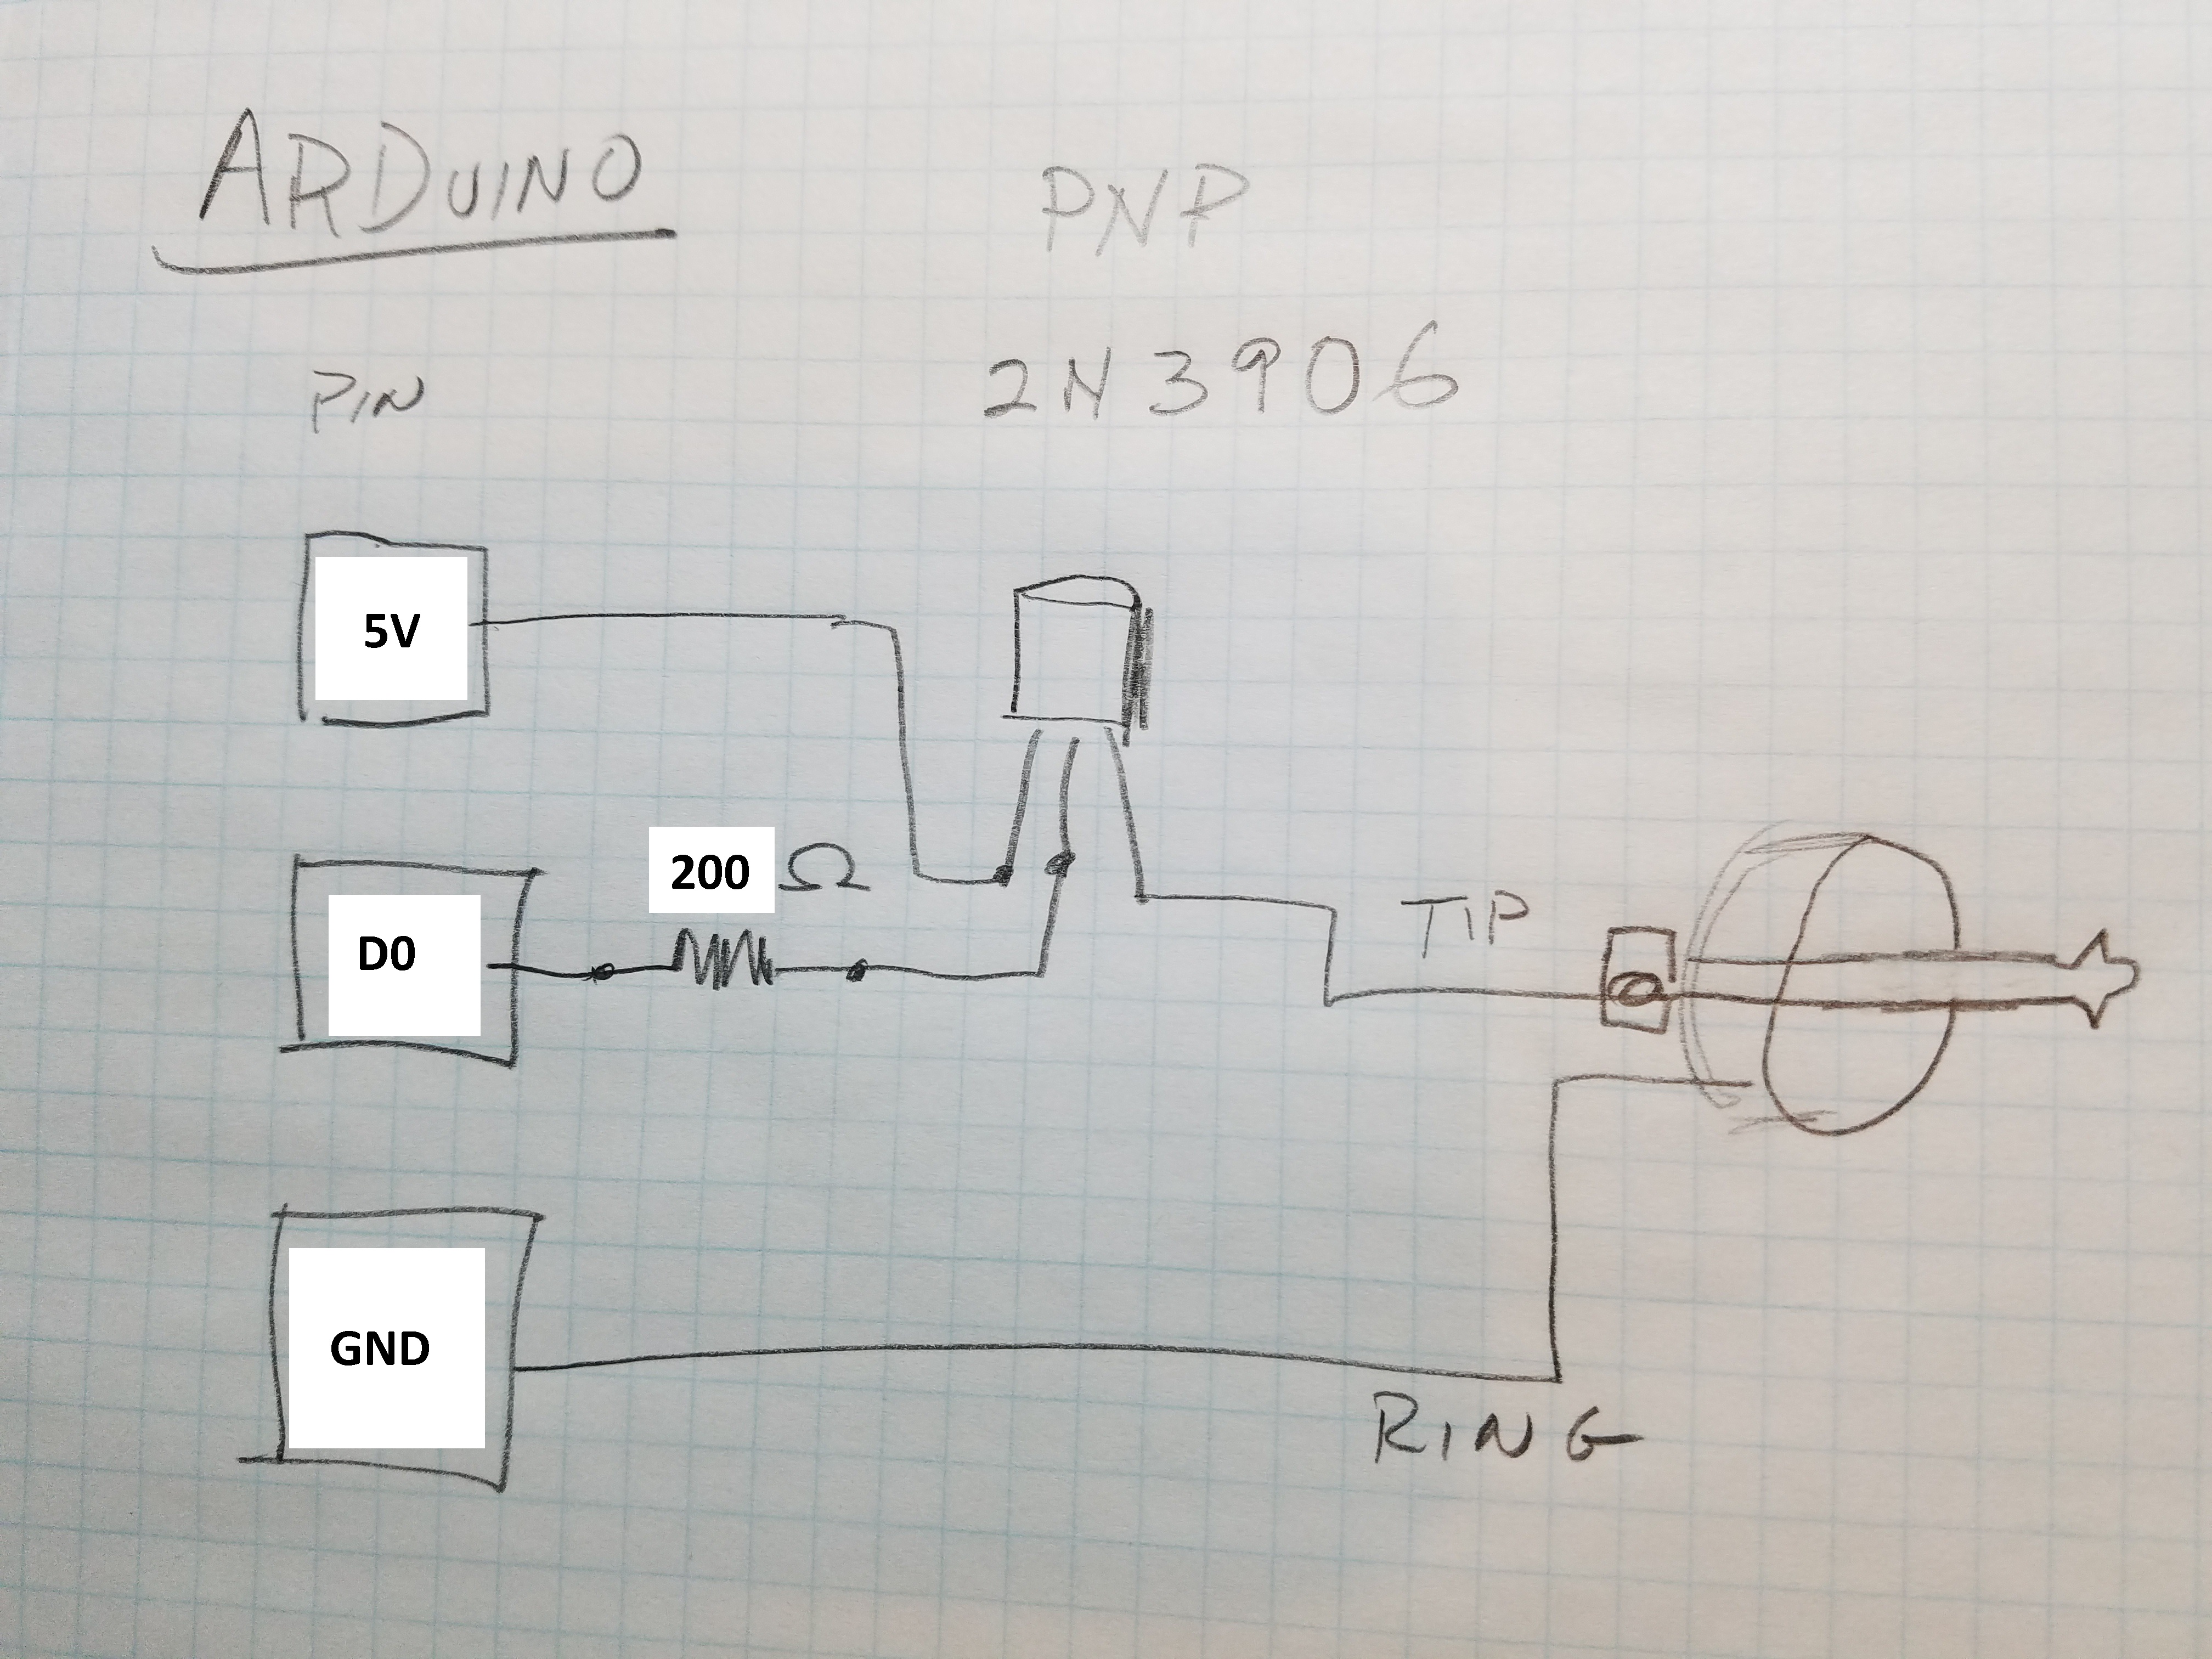 ARDUINO
PNP
2N3906
PIN
5V
200 Ω
D0
TIP
GND
RING